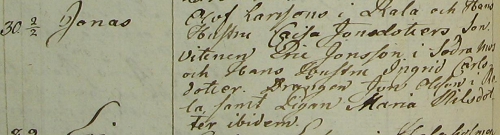 30 2/2 Jonas
Olof Larssons i Kala och Hans
Hustru Cajsa Jonsdotters Son.
Vitenen Eric Jonsson i Södra
och Hans Hustru Ingrid Carls
dotter. Drengen Jon Olsson i
la, samt Pigan Maria Nilsdot
ter ibidem.